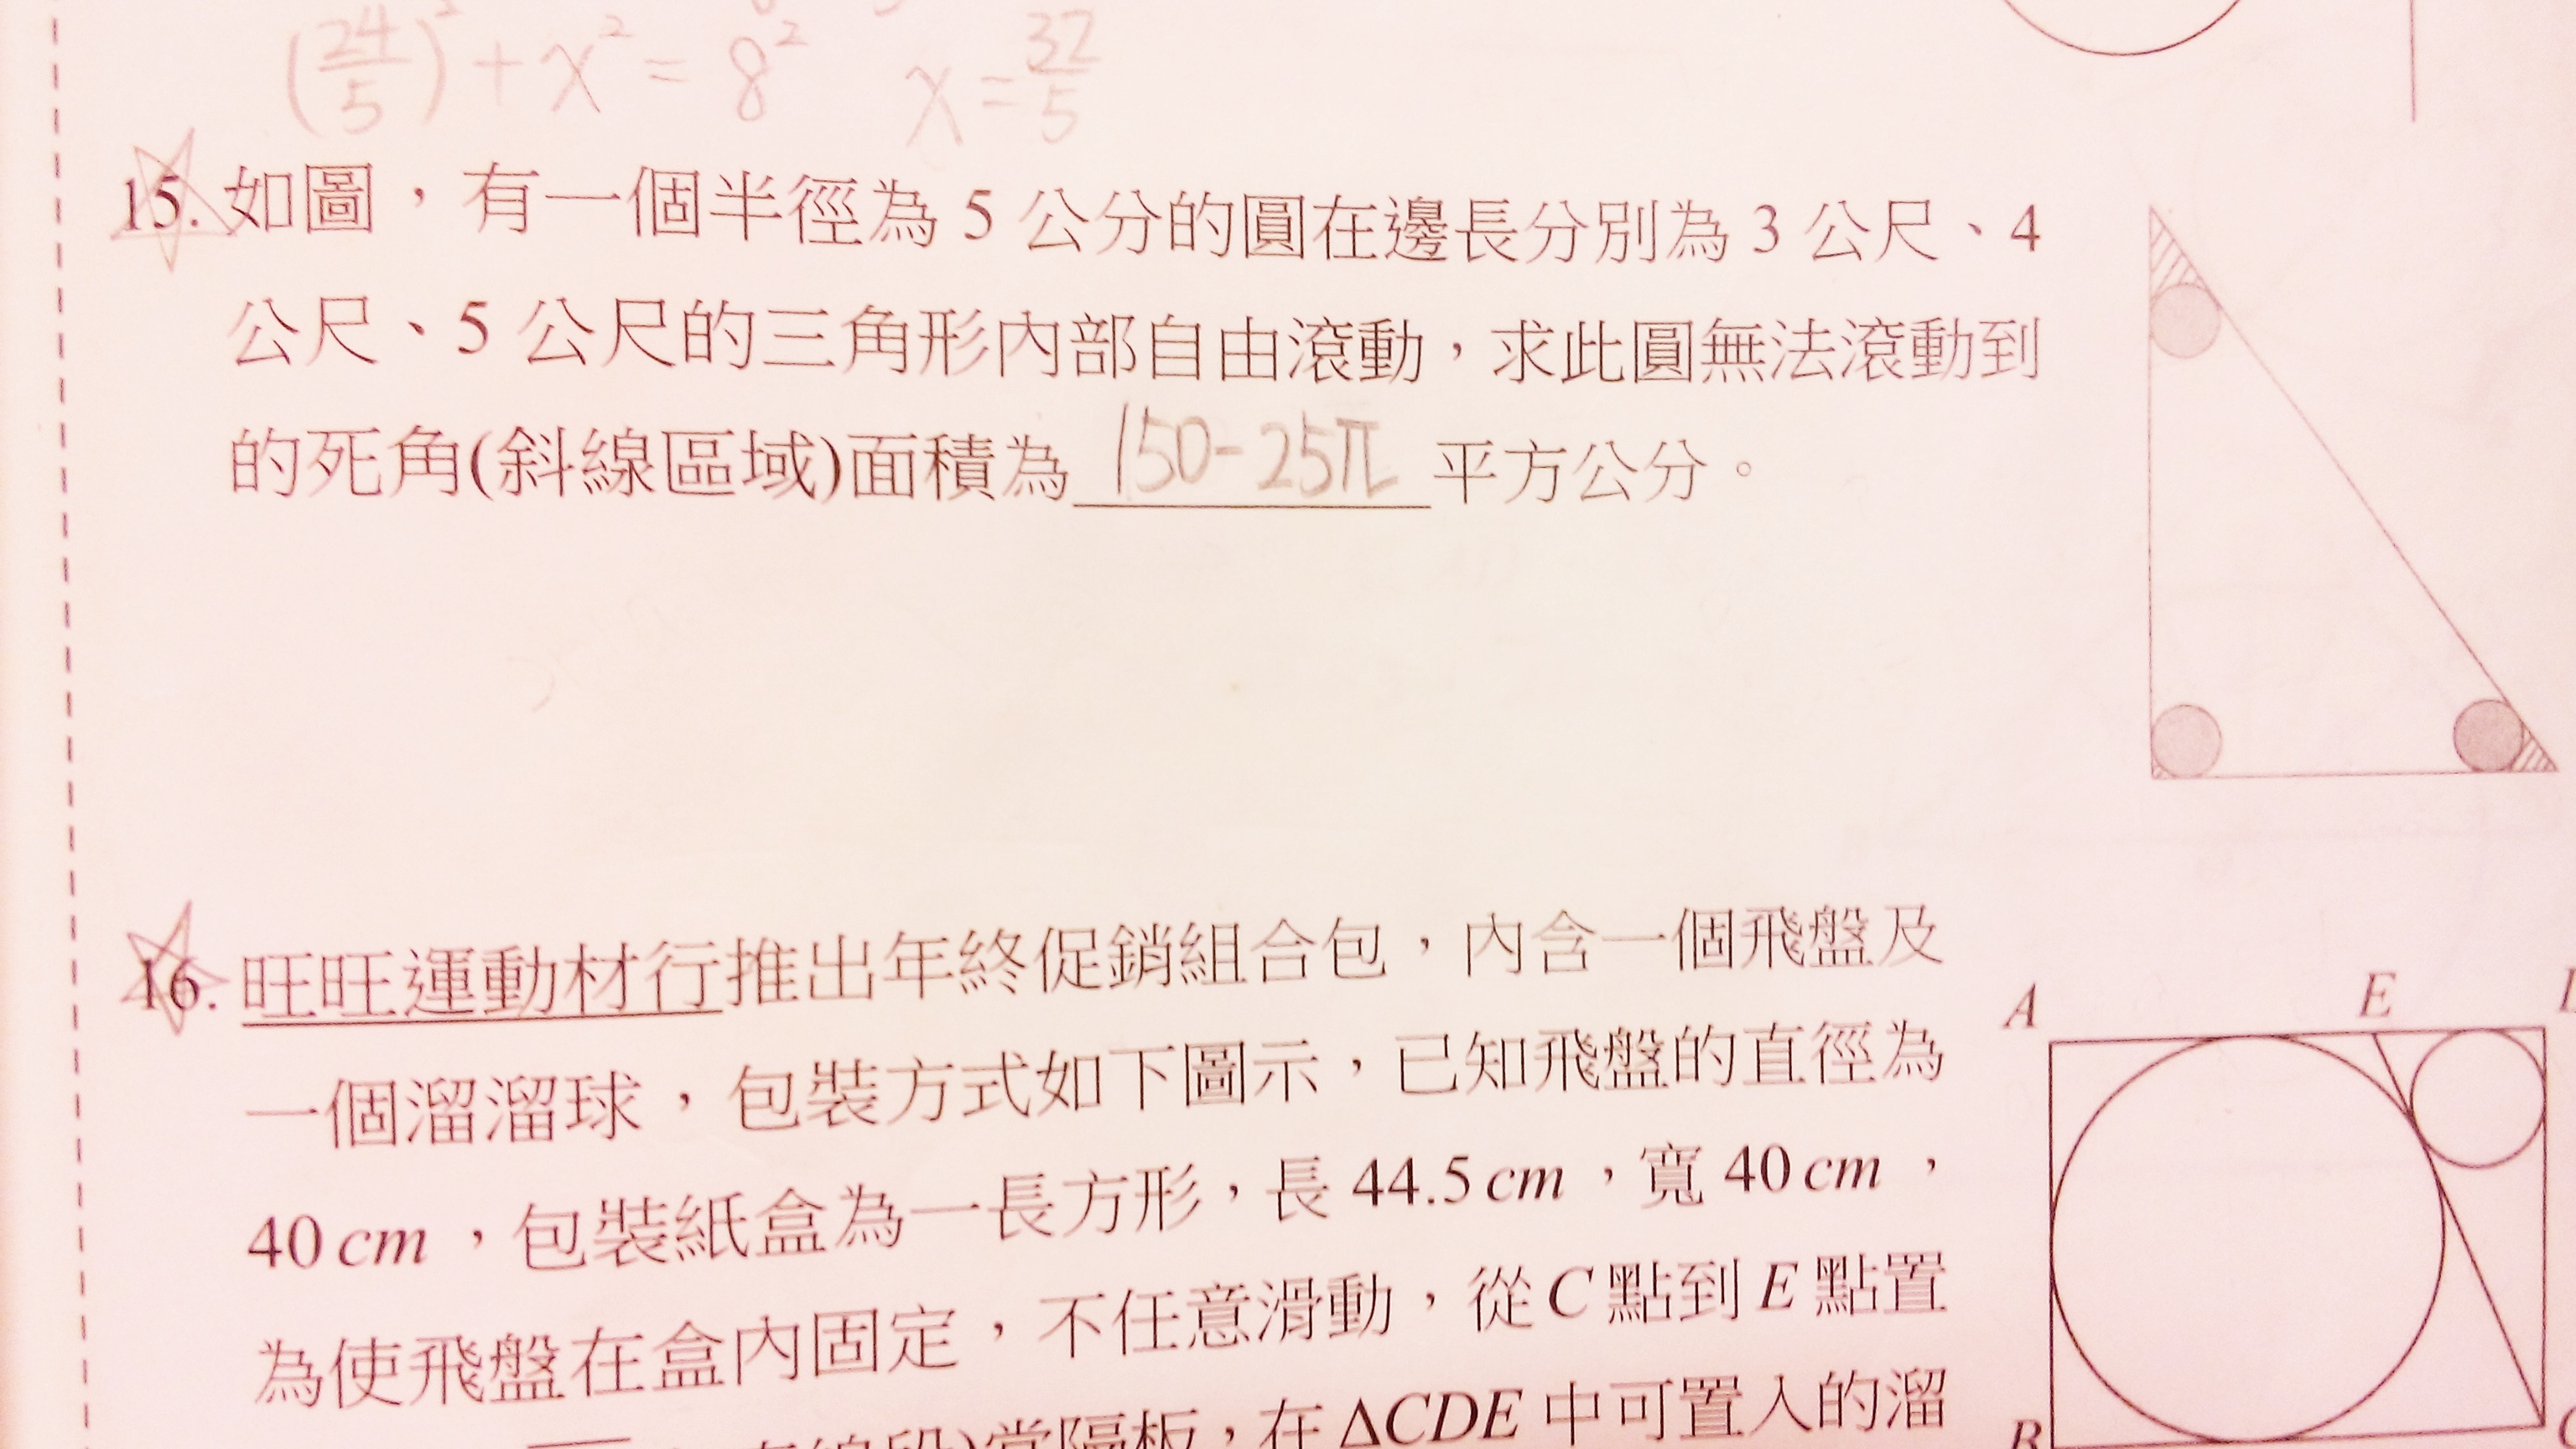 (24/5)² + x² = 8² x = 32/5
15. 如圖，有一個半徑為 5 公分的圓在邊長分別為 3 公尺、4
公尺、5 公尺的三角形內部自由滾動，求此圓無法滾動到
的死角(斜線區域)面積為 150-25π 平方公分。
16. 旺旺運動材行推出年終促銷組合包，內含一個飛盤及
一個溜溜球，包裝方式如下圖示，已知飛盤的直徑為
40 cm，包裝紙盒為一長方形，長 44.5 cm，寬 40 cm，
為使飛盤在盒內固定，不任意滑動，從 C 點到 E 點置
當隔板，在 ΔCDE 中可置入的溜
A
E
B